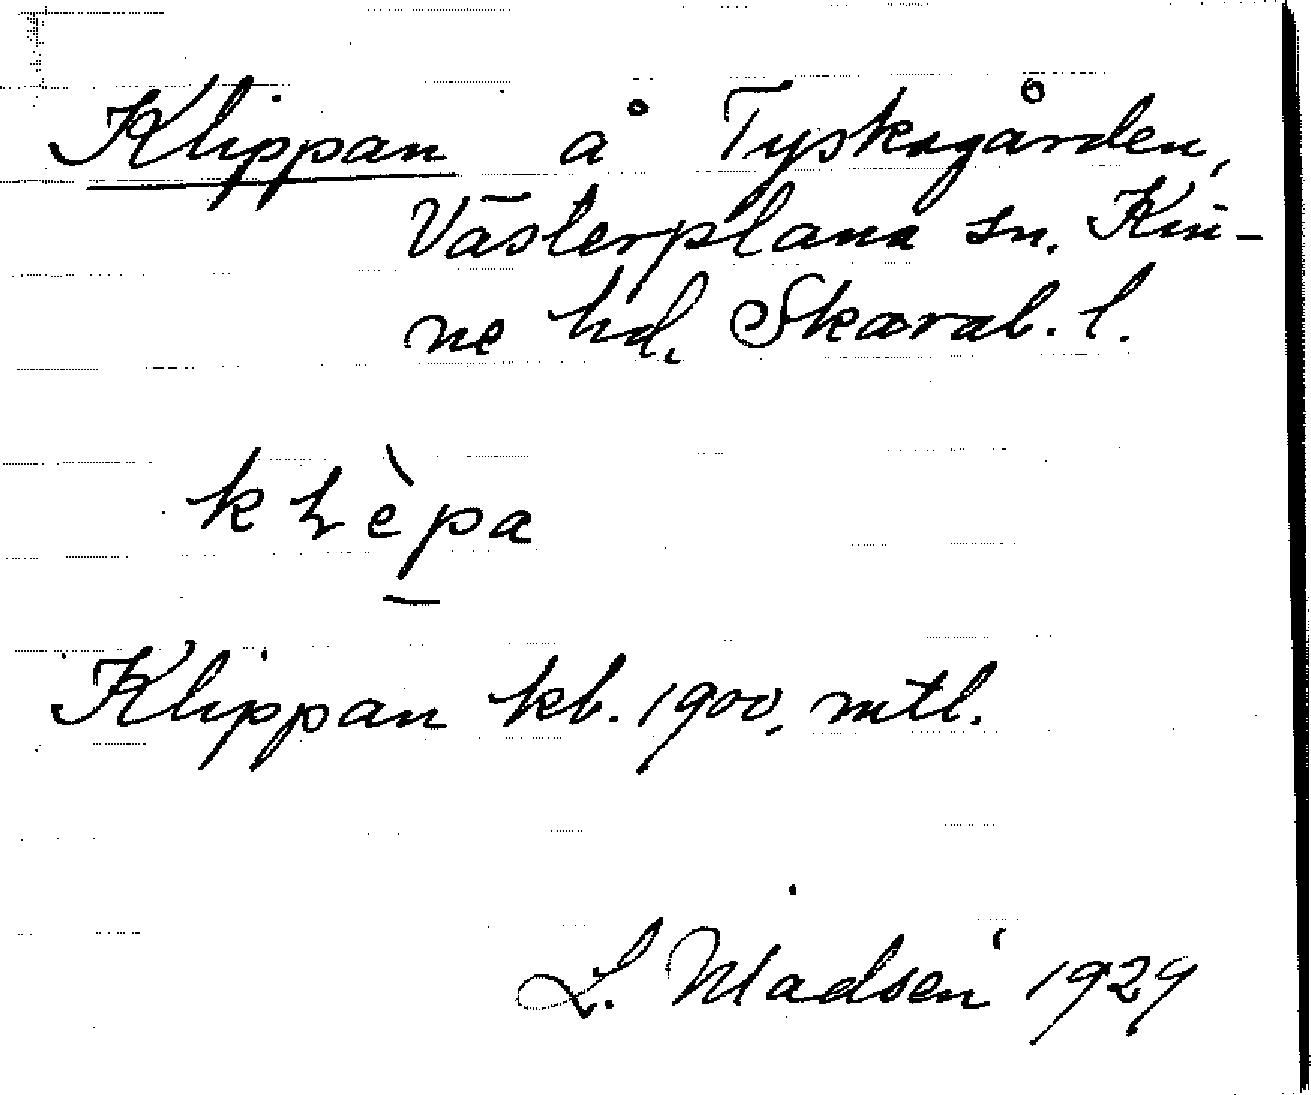 Klippan å Tyskagården,
Västerplana sn. Kin-
ne hd. Skarab. l.
klèpa
Klippan kb. 1900, mtl.
L. Madsen 1929